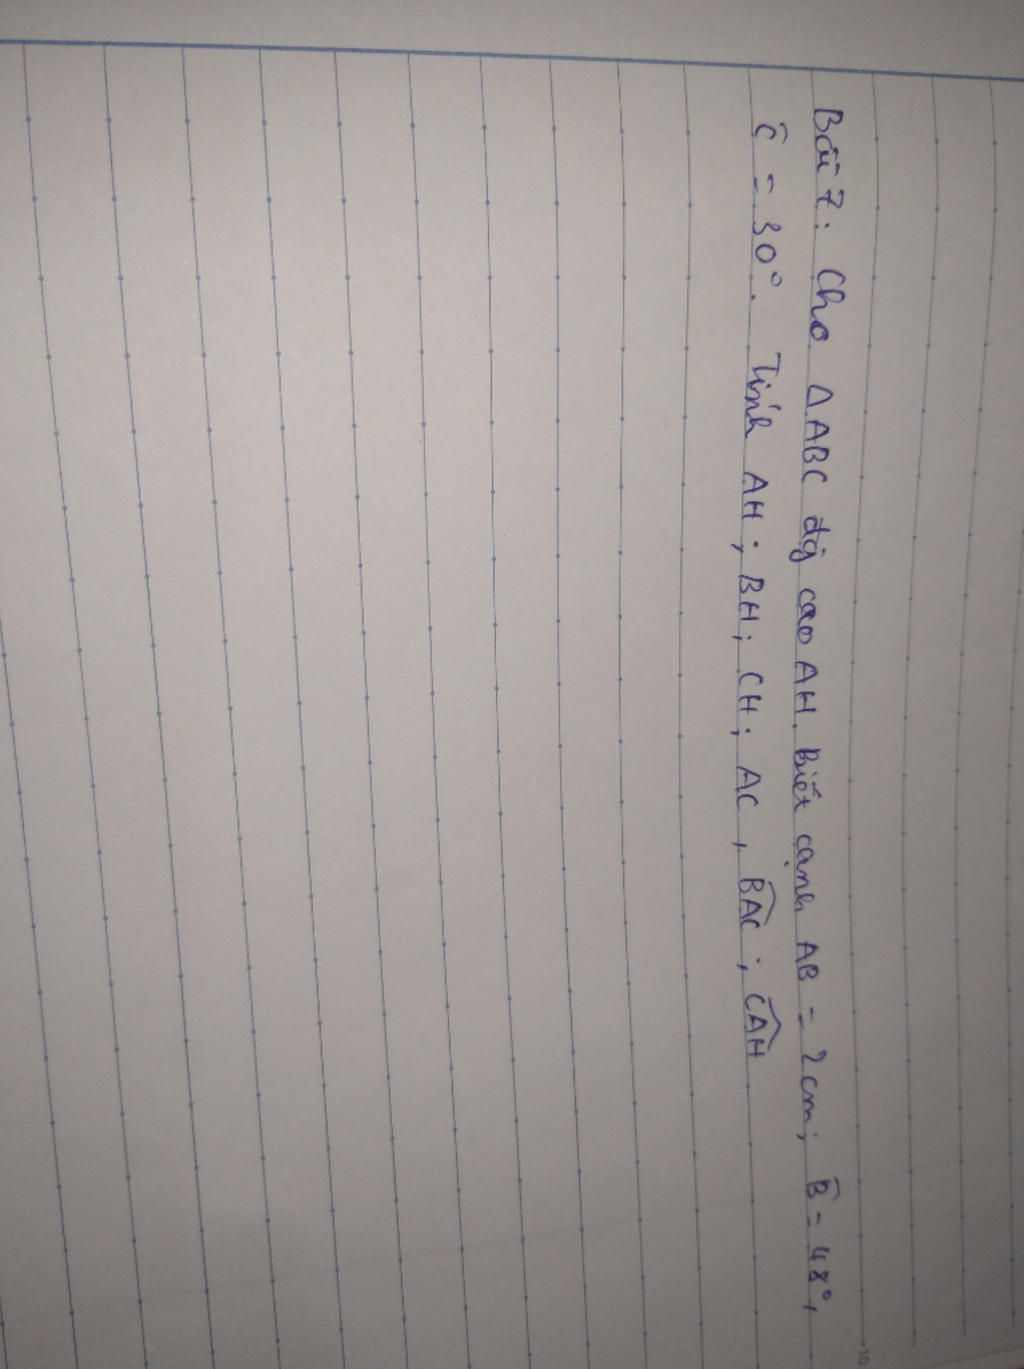 Bài 7: Cho ΔABC đg cao AH. Biết cạnh AB = 2cm; B̂ = 48°,
Ĉ = 30°. Tính AH; BH; CH; AC, B̂AC; ĈAH
10